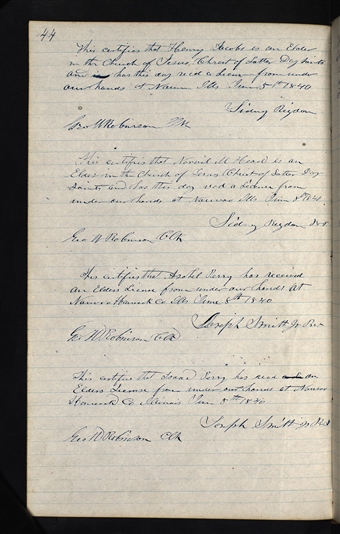 44
This certifies that Henry Jacobs is an Elder
in the Church of Jesus Christ of Latter Day Saints
and has this day recd a license from under
our hands at Nauvoo Ills June 8th 1840
Sidney Rigdon
Geo W Robinson Clk
This certifies that M Head is an
Elder in the Church of Jesus Christ of Latter Day
Saints and has this day recd a License from
under our hands at Nauvoo Ills June 8th 1840
Sidney Rigdon
Geo W Robinson Clk
This certifies that Asahel Perry has received
an Elders License from under our hands at
Nauvoo Hancock Co Ills June 8th 1840
Joseph Smith Jr
Geo W Robinson Clk
This certifies that Isaac Perry has recd an
Elders License from under our hands at Nauvoo
Hancock Co Illinois June 8th 1840
Joseph Smith Jr
Geo W Robinson Clk